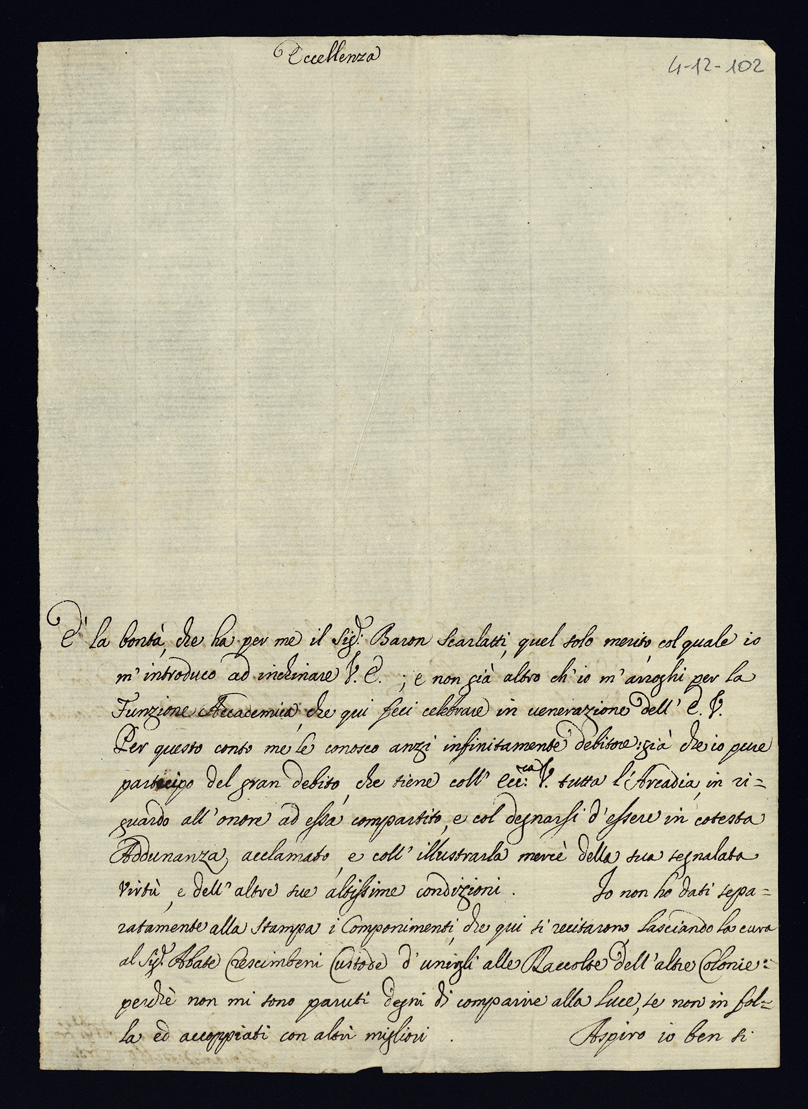 Eccellenza
4-12-102
E' la bontà, che ha per me il Sig.r Baron Scarlatti, quel solo merito, col quale io
m'introduco ad inchinare V. E. ; e non già altro ch'io m'arroghi per la
Funzione Accademica, che qui feci celebrare in venerazione dell' E. V.
Per questo conto me le conosco anzi infinitamente debitore: già che io pure
partecipo del gran debito, che tiene coll' Ecc.za V. tutta l'Arcadia, in ri=
guardo all'onore ad essa compartito, e col degnarsi d'essere in cotesta
Addunanza acclamato, e coll'illustrarla mercè della sua segnalata
virtù, e dell'altre sue altissime condizioni . Io non ho dati sepa=
ratamente alla Stampa i Componimenti, che qui si recitarono lasciando la cura
al Sig.r Abate Crescimbeni Custode d'unirgli alle Raccolte dell'altre Colonie:
perchè non mi sono paruti degni di comparire alla luce, se non in fol=
la ed accoppiati con altri migliori . Aspiro io ben sì